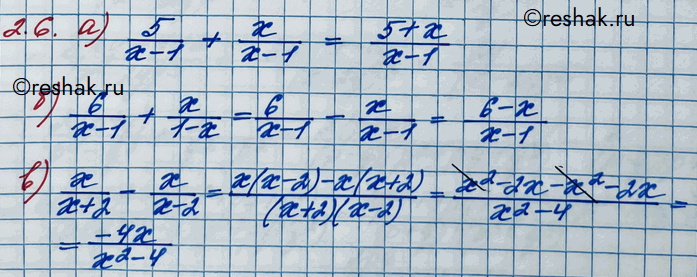 2.6. а) 5/(x-1) + x/(x-1) = (5+x)/(x-1)
©reshak.ru
©reshak.ru
б) 6/(x-1) + x/(1-x) = 6/(x-1) - x/(x-1) = (6-x)/(x-1)
в) x/(x+2) - x/(x-2) = (x(x-2)-x(x+2))/((x+2)(x-2)) = (x²-2x-x²-2x)/(x²-4) =
= (-4x)/(x²-4)